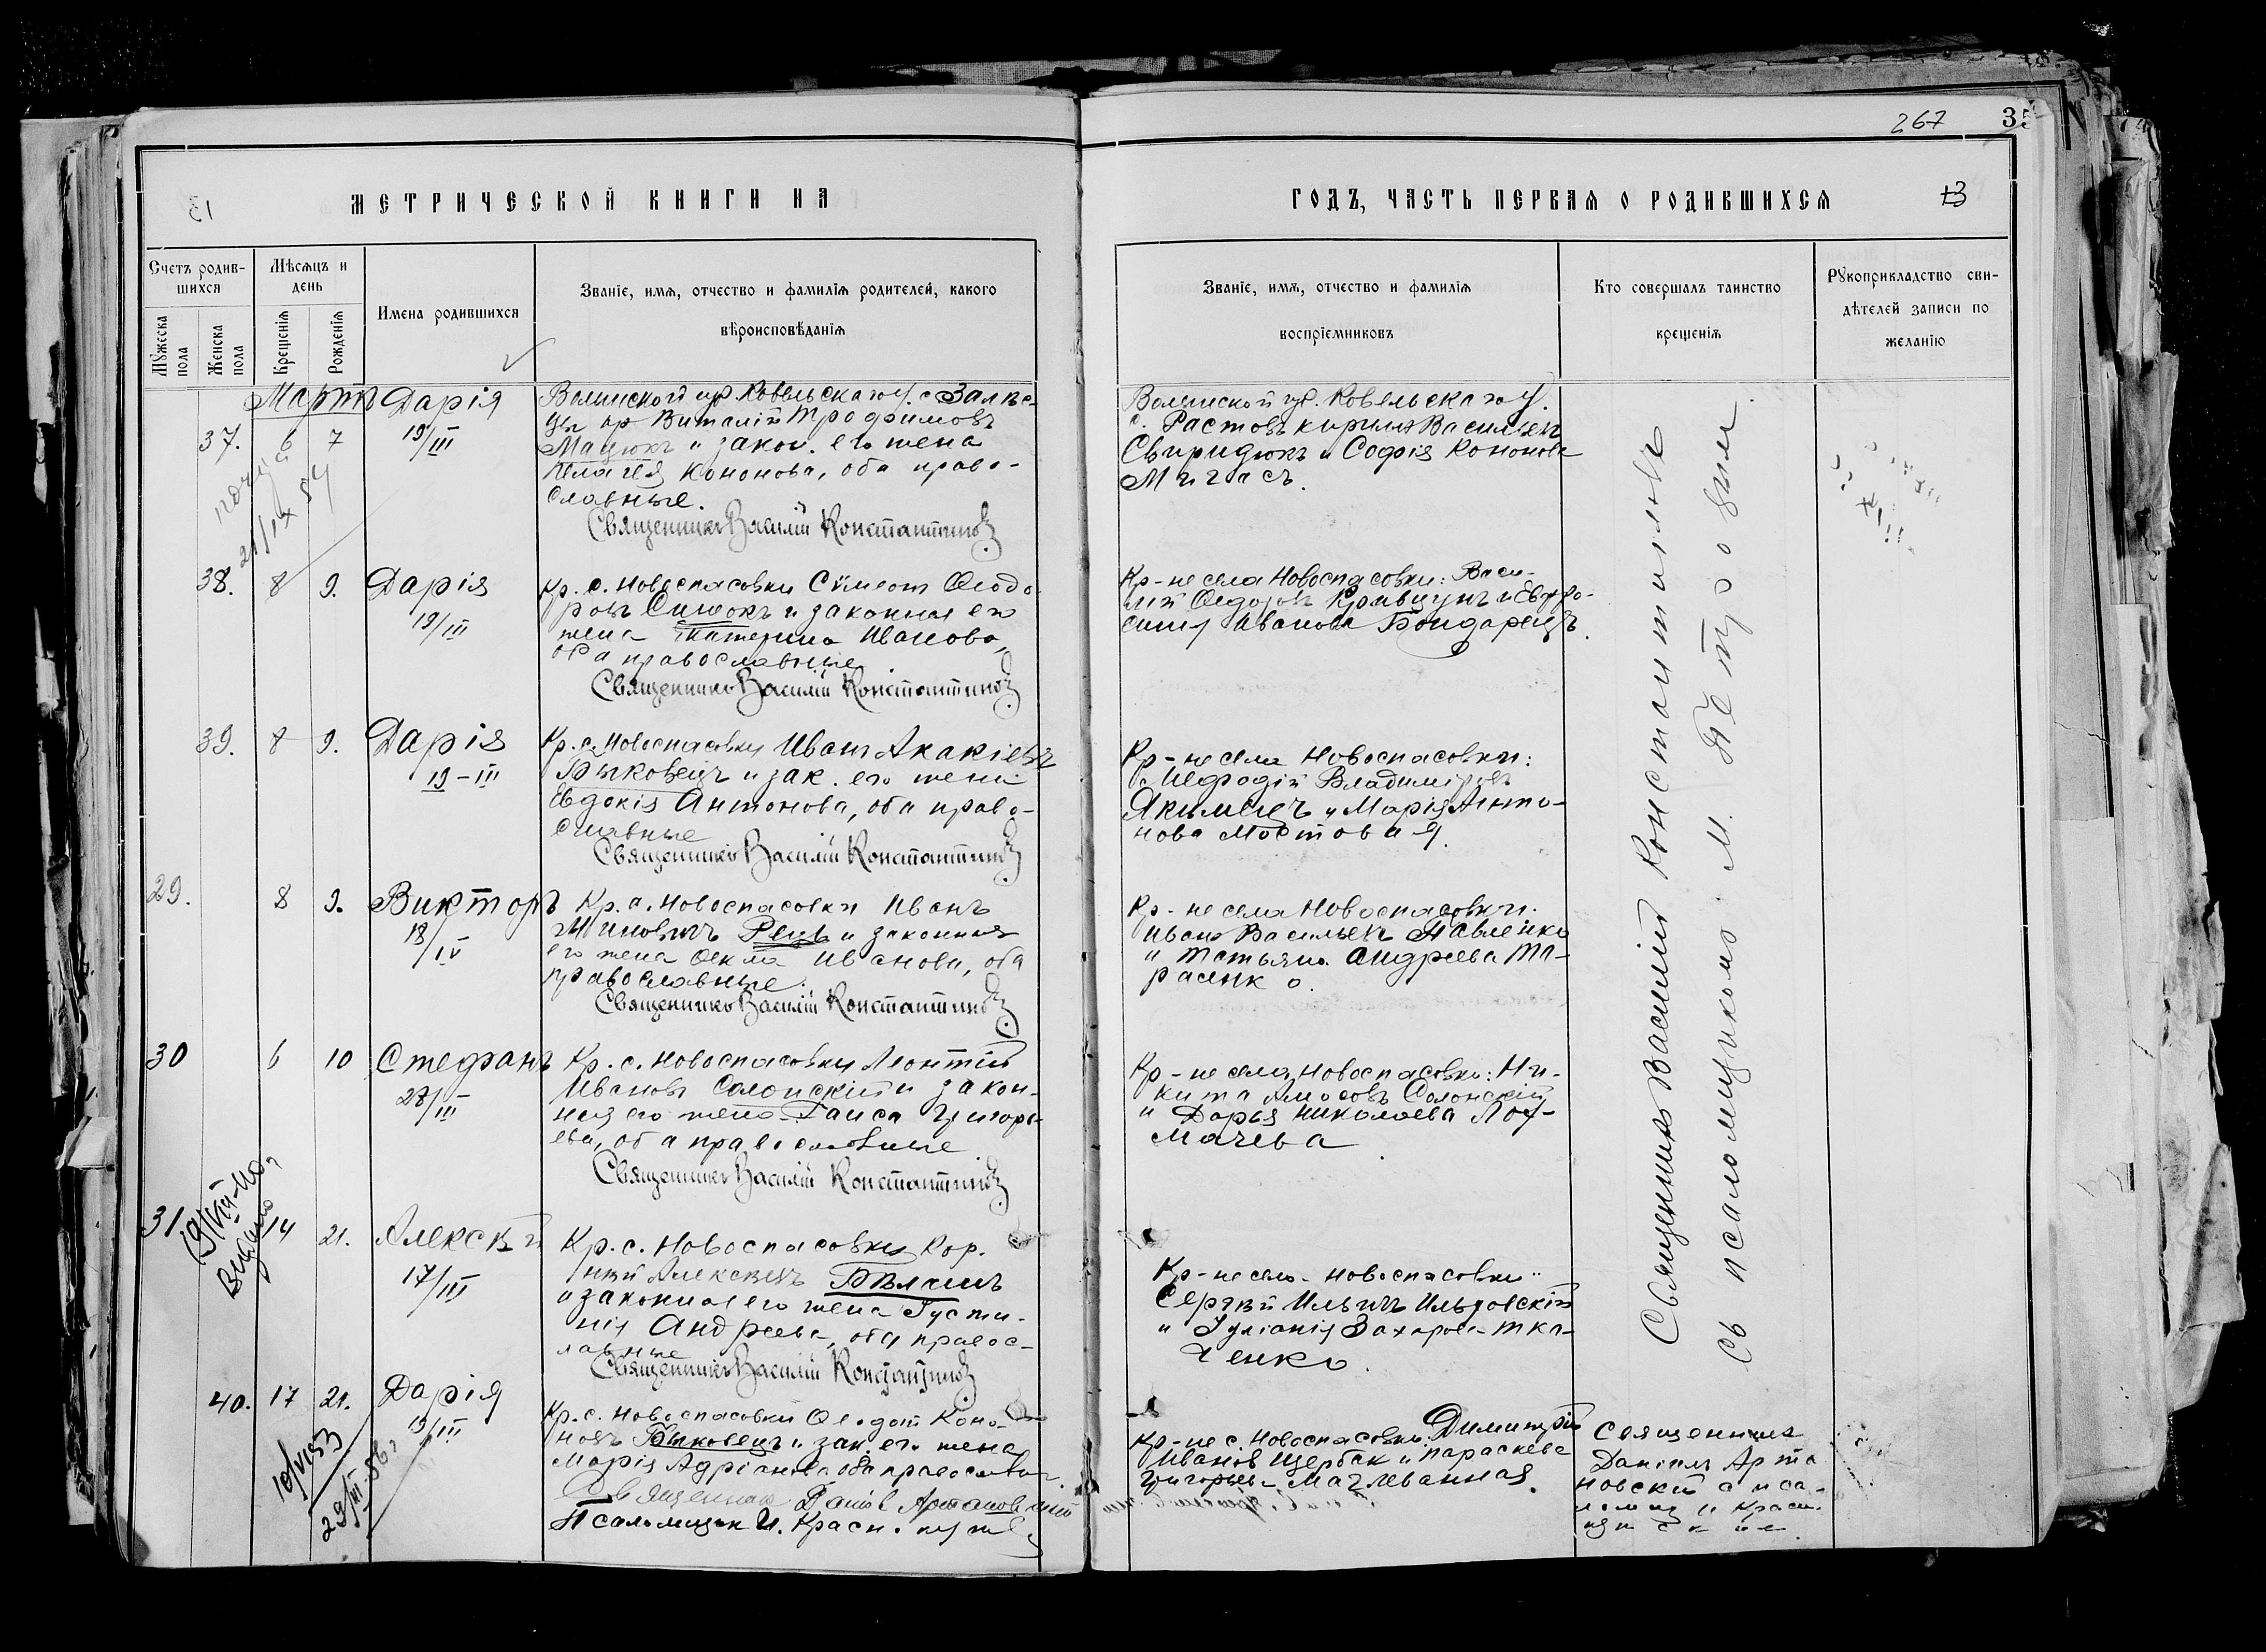 267
35
31
МЕТРИЧЕСКОЙ КНИГИ НА
ГОДЪ, ЧАСТЬ ПЕРВАЯ О РОДИВШИХСЯ
13
Счетъ родив-
шихся
Мужеска
пола
Женска
пола
Мѣсяцъ и
день
Крещенія
Рожденія
Имена родившихся
Званіе, имя, отчество и фамилія родителей, какого
вѣроисповѣданія
Званіе, имя, отчество и фамилія
воспріемниковъ
Кто совершалъ таинство
крещенія
Рукоприкладство сви-
дѣтелей записи по
желанію
Мартъ
37.
6
7
Дарія
19/III
21/IX 54
Волынской губ Ковельскаго у. с Залѣс-
цы кр Виталій Трофимовъ
Мацюкъ и закон. его жена
Пелагея Кононова, оба право-
славные.
Священникъ Василій Константиновъ
Волынской губ. Ковельскаго у.
с. Растовъ Кирилъ Васильевъ
Свиридюкъ и Софія Кононова
Мигасъ.
38.
8
9.
Дарія
19/III
Кр. с. Новоспасовки Сѵмеон Ѳеодо
ровъ и законная его
жена Екатерина Иванова,
оба православные
Священникъ Василій Константиновъ
Кр-не села Новоспасовки: Васи-
лій Ѳедоровъ Кравцунъ и Евфро-
синія Иванова Бондарецъ.
39.
8
9.
Дарія
19-III
Кр. с. Новоспасовки Иванъ Акакіевъ
Быковецъ и зак. его жена
Евдокія Антонова, оба право-
славные
Священникъ Василій Константиновъ
Кр-не села Новоспасовки:
Меѳодій Владиміровъ
Якимецъ и Марія Анто-
нова Мостовая.
29.
8
9.
Викторъ
18/IV
Кр. с. Новоспасовки Иванъ
Рецъ и законная
его жена Ѳекла Иванова, оба
православные.
Священникъ Василій Константиновъ
Кр-не села Новоспасовки:
Иванъ Васильевъ Павленко
и Татьяна Андреева Та-
расенко.
30
6
10
Стефанъ
28/III
Кр. с. Новоспасовки Леонтій
Ивановъ Солонскій и закон-
ная его жена Раиса Григорь-
ева, оба православные
Священникъ Василій Константиновъ
Кр-не села Новоспасовки: Ни-
кита Амосовъ Солонскій
и Дарья Николаева
31
14
21.
Алексѣй
17/III
Кр. с. Новоспасовки Кор-
нилій Алексѣевъ Бѣлашъ
и законная его жена Іусти-
нія Андреева, оба правос-
лавные
Священникъ Василій Константиновъ
Кр-не села Новоспасовки:
Сергѣй Ильичъ Ильговскій
и Іуліанія Захарова Тка-
ченко.
40.
17
21.
Дарія
19/III
10/VI 53
29/III 56г
Кр. с. Новоспасовки Ѳеодот Коно-
новъ Быковецъ и зак. его жена
Марія Адріанова оба православн.
Священник Даніил Артановскій
Псаломщик И. Красн
Кр-не с. Новоспасовки: Димитрій
Ивановъ Щербак и Параскева
Григорьева Мачлеванная.
Священникъ Василій Константиновъ
съ псаломщикомъ М. Петровым
Священникъ
Даніилъ Арта
новскій с пса-
ломщ И Красн